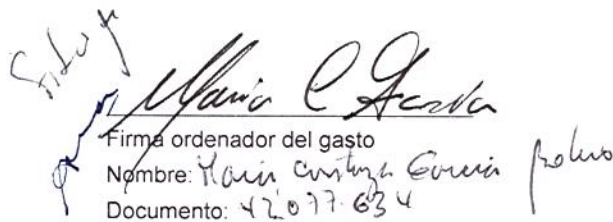 Maria C García
Firma ordenador del gasto
Nombre: Maria García
Documento: 42.077.634